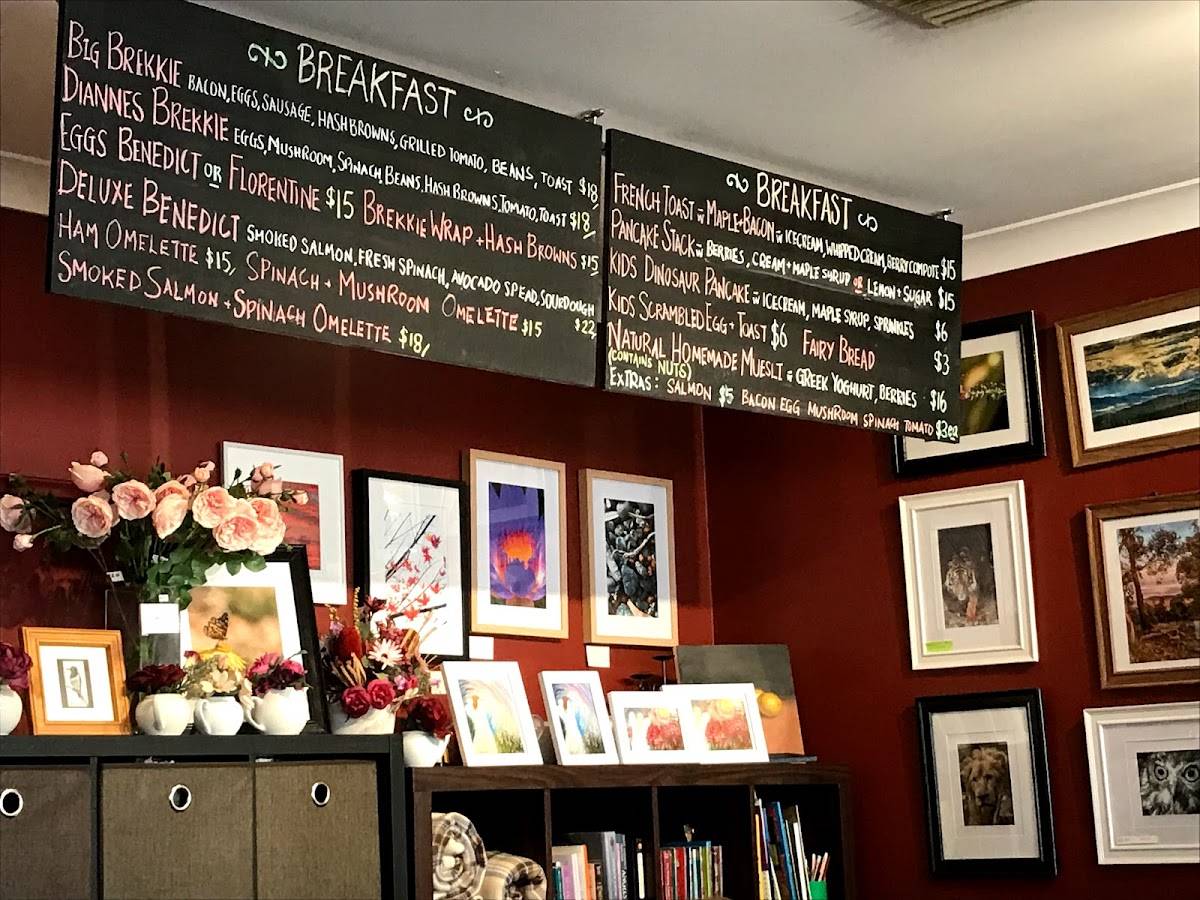 BREAKFAST
BIG BREKKIE BACON, EGGS, SAUSAGE, HASHBROWNS, GRILLED TOMATO, BEANS, TOAST $18/
DIANNES BREKKIE EGGS, MUSHROOM, SPINACH, BEANS, HASH BROWNS, TOMATO, TOAST $18/
EGGS BENEDICT OR FLORENTINE $15 BREKKIE WRAP + HASH BROWNS $15
DELUXE BENEDICT SMOKED SALMON, FRESH SPINACH, AVOCADO SPEAD, SOURDOUGH $22
HAM OMELETTE $15/ SPINACH + MUSHROOM OMELETTE $15
SMOKED SALMON + SPINACH OMELETTE $18/
BREAKFAST
FRENCH TOAST w MAPLE+BACON w ICECREAM, WHIPPED CREAM, BERRY COMPOTE $15
PANCAKE STACK w BERRIES, CREAM + MAPLE SYRUP OR LEMON + SUGAR $15
KIDS DINOSAUR PANCAKE w ICECREAM, MAPLE SYRUP, SPRINKLES $6
KIDS SCRAMBLED EGG + TOAST $6 FAIRY BREAD $3
NATURAL HOMEMADE MUESLI w GREEK YOGHURT, BERRIES $16
(CONTAINS NUTS)
EXTRAS: SALMON $5 BACON EGG MUSHROOM SPINACH TOMATO $3ea